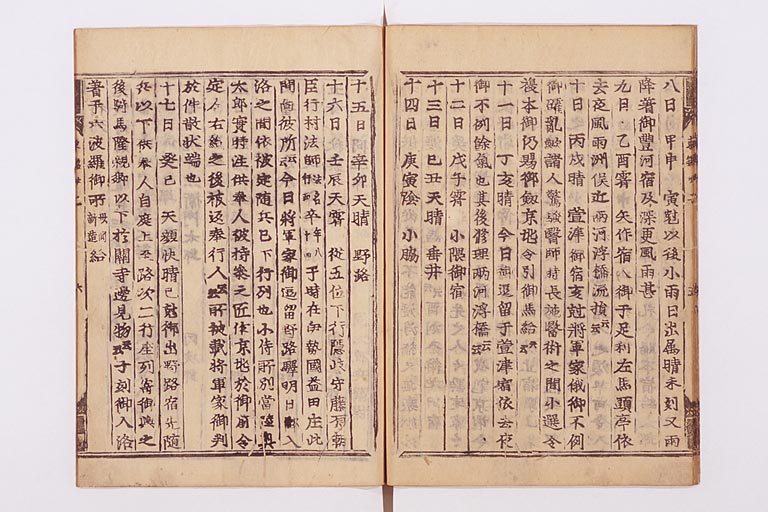 八日 甲申 寅尅以後小雨日出属晴未刻又雨
降着御豊河宿及深更風雨甚
九日 乙酉霽 矢作宿入御于足利左馬頭亭依
去夜風雨洲俣近両河浮橋流損云云
十日 丙戌晴 萱津御宿亥尅將軍家俄御不例
御霍乱諸人驚騒醫師時長施醫術之間小選令
復本御仍賜御劔京地令別御馬給云云
十一日 丁亥晴 今日御逗留于萱津宿依去夜
御不例餘氣也其後修理両河浮橋云云
十二日 戊子霽 小隈御宿
十三日 己丑天晴 垂井
十四日 庚寅陰 小脇
十五日 辛卯天晴 野路
十六日 壬辰天霽 從五位下行隠岐守藤原朝
臣行村法師法名 卒年八十 于時在向勢國益田庄此
間向彼所云云今日將軍家御逗留野路驛明日御入
洛之間依被定随兵已下行列也小侍所別當陸奥
太郎實時注供奉人被持参之匠作京地於御前令
定人右給之後被返奉行人云云所被載將軍家御判
於件散状端也
十七日 癸巳 天顔快晴已尅御出野路宿先随
兵以下供奉人自庭上至路次二行座列寄御輿之
後騎馬隆親卿以下於關寺邊見物云云子刻御入洛
着于六波羅御所新造給